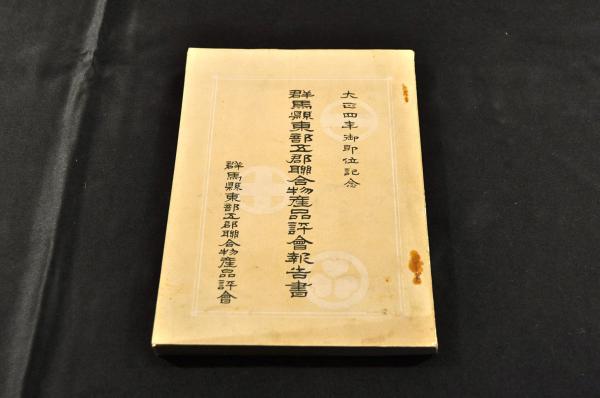 大正四年御即位記念
群馬縣東部五郡聯合物産品評會報告書
群馬縣東部五郡聯合物産品評會